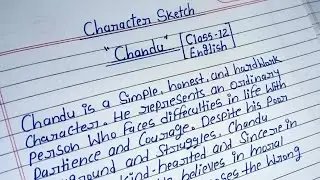 Character Sketch
"Chandu" [Class-12 English]
Chandu is a Simple, honest, and hardwork
Character. He represents an Ordinary
Person Who Faces difficulties in life with
Partience and Courage. Despite his Poor
ground and Struggles, Chandu
kind-hearted and Sincere in
believes in moral
the Wrong